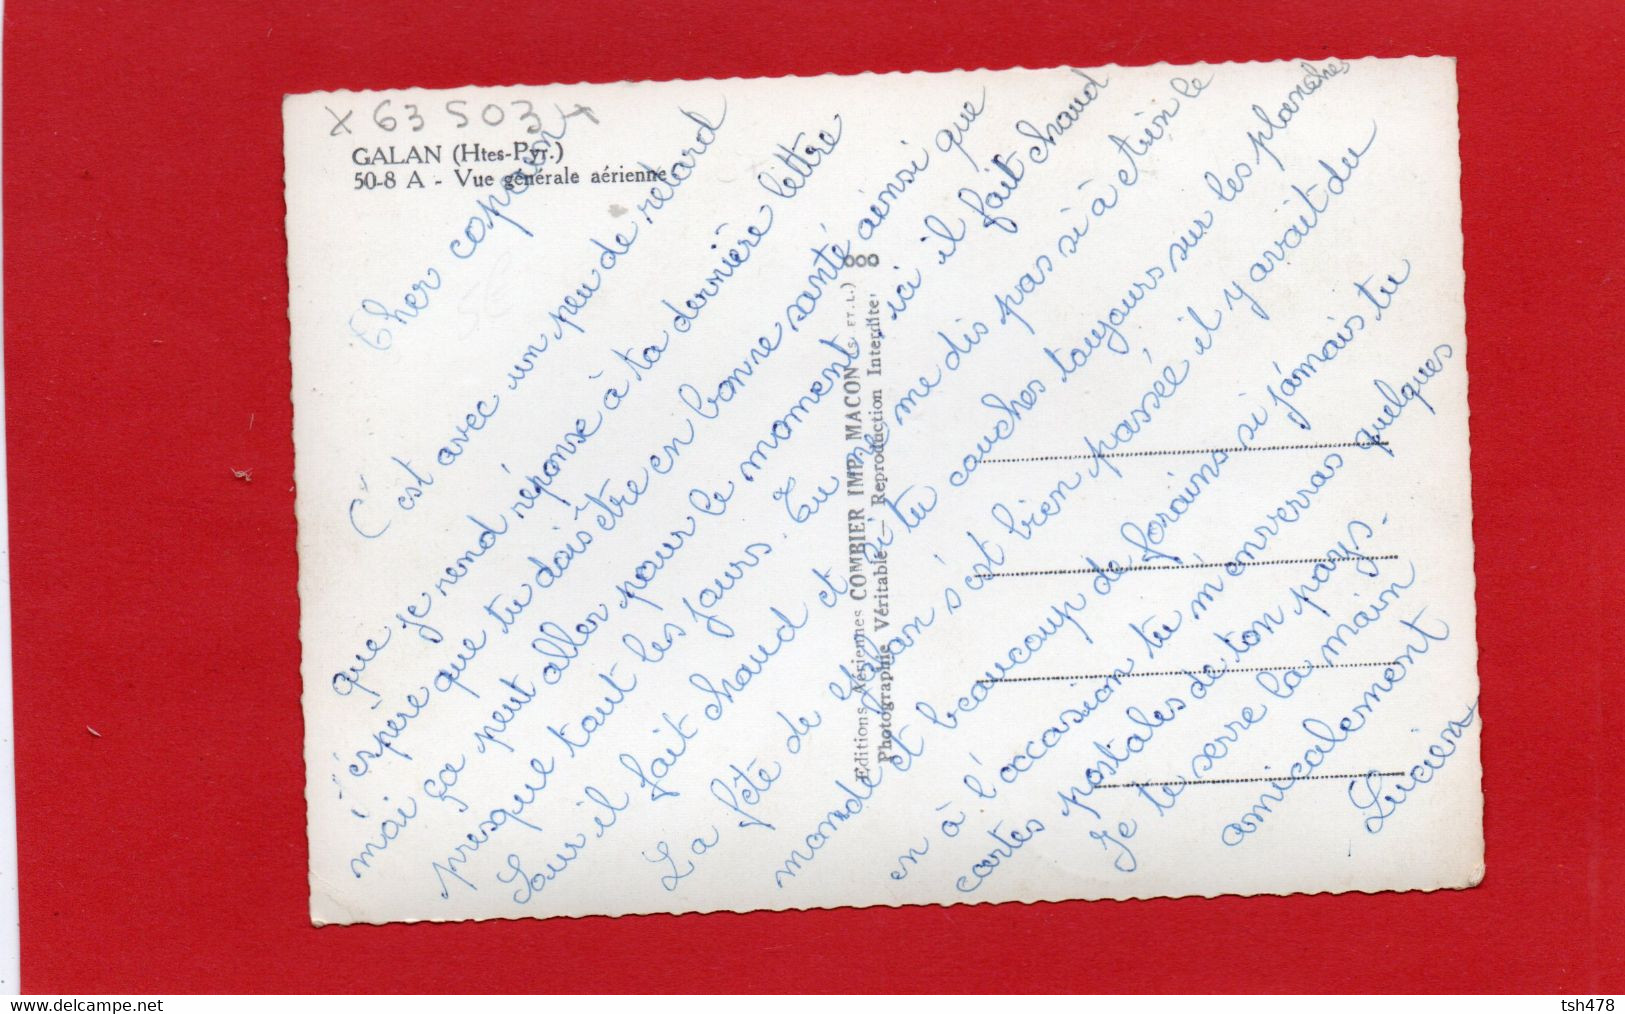 x 63 5034
GALAN (Htes-Pyr.)
50-8 A - Vue générale aérienne
5€
Cher copain
C'est avec un peu de retard
que je rend réponse à ta dernière lettre
j'espère que tu dois être en bonne santé ainsi que
moi ça peut aller pour le moment, ici il fait chaud
presque tout les jours. Tu ne me dis pas si à
Lour il fait chaud et si tu couches toujours sur les planches
La fête de Galan s'est bien passée il y avait du
monde et beaucoup de forains si jamais tu
en à l'occasion tu m'enverras quelques
cartes postales de ton pays.
Je te serre la main
amicalement
Lucien
Editions Aériennes COMBIER IMP. MACON (S.-ET-L.)
Photographie Véritable - Reproduction Interdite.
delcampe.net
tsh478